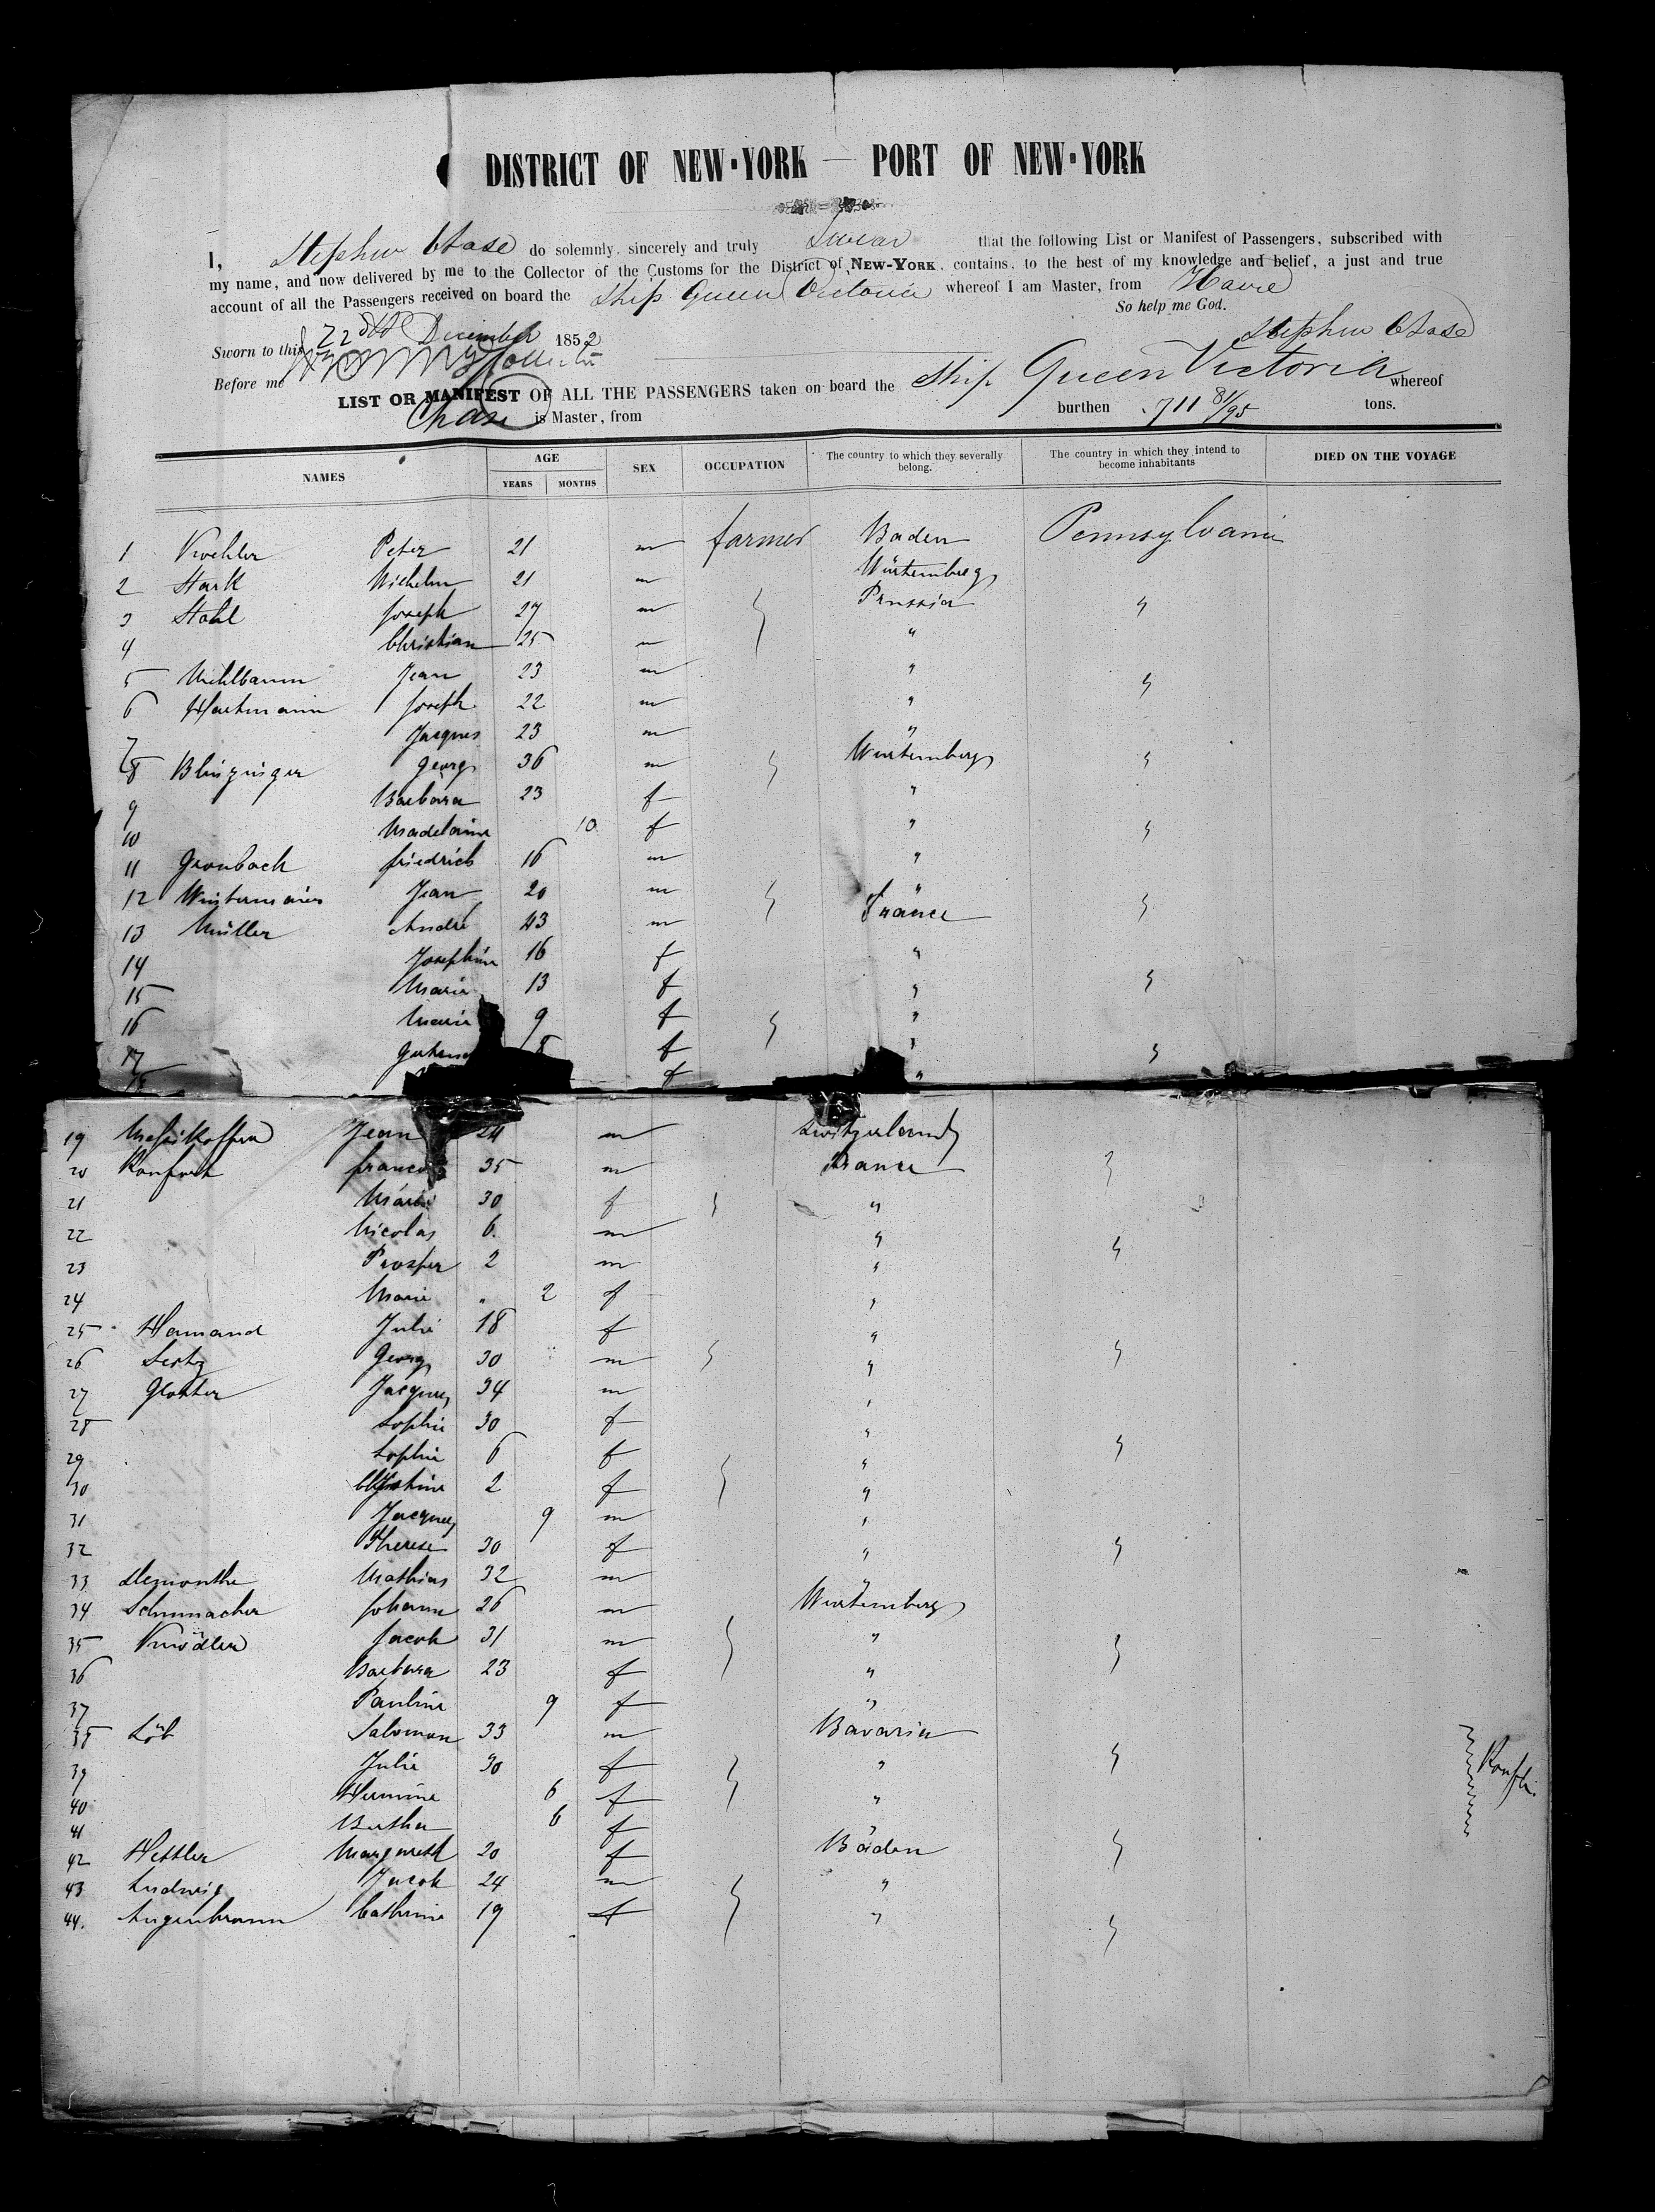 DISTRICT OF NEW-YORK — PORT OF NEW-YORK
I, Stephen Chase do solemnly, sincerely and truly Swear that the following List or Manifest of Passengers, subscribed with
my name, and now delivered by me to the Collector of the Customs for the District of NEW-YORK, contains, to the best of my knowledge and belief, a just and true
account of all the Passengers received on board the Ship Queen Victoria whereof I am Master, from Havre
So help me God.
Sworn to this 22 December 1852 Stephen Chase
Before me
LIST OR MANIFEST OF ALL THE PASSENGERS taken on board the Ship Queen Victoria whereof
Chase is Master, from burthen 711 81/95 tons.
NAMES AGE YEARS MONTHS SEX OCCUPATION The country to which they severally belong. The country in which they intend to become inhabitants DIED ON THE VOYAGE
1 Peter 21 m farmer Baden Pennsylvania
2 Stark Wilhelm 21 m Würtemberg
3 Stahl Joseph 27 m Prussia
4 Christian 25 m "
5 Jean 23 m "
6 Hartmann Joseph 22 m "
7 Jacques 23 m "
8 Blinzinger Georg 36 m Wurtemberg
9 Barbara 23 f "
10 Madelaine 10 f "
11 Gronbach friedrich 16 m "
12 Jean 20 m "
13 Müller André 43 m France
14 Josephine 16 f "
15 Marie 13 f "
16 Marie 9 f "
17 8 f "
18 f "
19 Jean 24 m Switzerland
20 francois 35 m France
21 Marie 30 f "
22 Nicolas 6 m "
23 Prosper 2 m "
24 Marie " 2 f "
25 Hamand Julie 18 f "
26 Georg 30 m "
27 Jacques 34 m "
28 Sophie 30 f "
29 Sophie 6 f "
30 Christine 2 f "
31 Jacques 9 m "
32 Therese 30 f "
33 Demonthe Mathias 32 m "
34 Schumacher Johann 26 m Wurtemberg
35 Knödler Jacob 31 m "
36 Barbara 23 f "
37 Pauline 9 f "
38 Löb Salomon 33 m Bavaria
39 Julie 30 f "
40 Hermine 6 f "
41 Bertha 6 f "
42 Hettler Margareth 20 f Baden
43 Ludwig Jacob 24 m "
44. Augenbraun Cathrine 19 f "